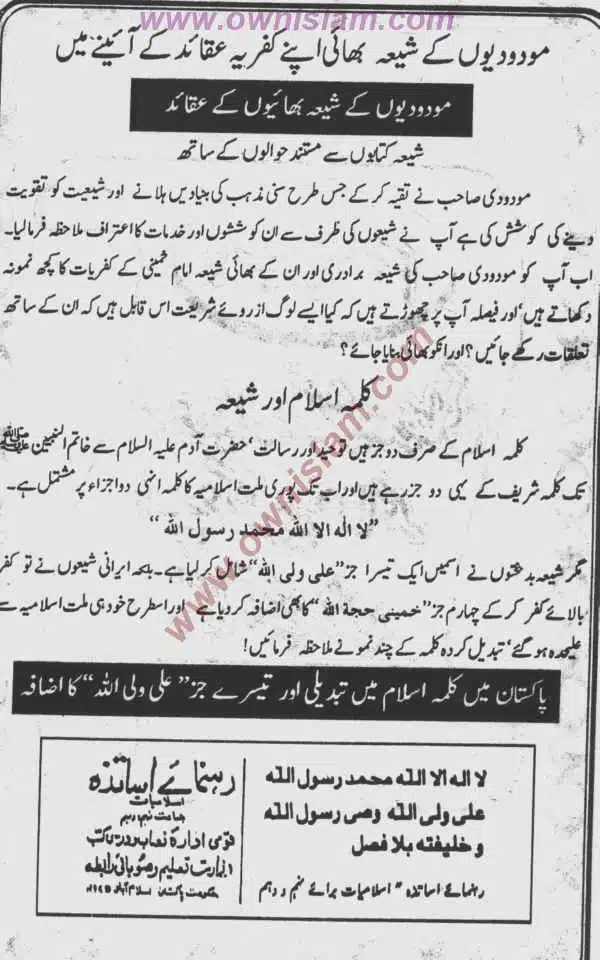 www.ownislam.com
مودودیوں کے شیعہ بھائی اپنے کفریہ عقائد کے آئینے میں
مودودیوں کے شیعہ بھائیوں کے عقائد
شیعہ کتابوں سے مستند حوالوں کے ساتھ
مودودی صاحب نے تقیہ کر کے جس طرح سنی مذہب کی بنیادیں ہلانے اور شیعیت کو تقویت
دینے کی کوشش کی ہے آپ نے شیعوں کی طرف سے ان کوششوں اور خدمات کا اعتراف ملاحظہ فرما لیا۔
اب آپ کو مودودی صاحب کی شیعہ برادری اور ان کے بھائی شیعہ امام خمینی کے کفریات کا کچھ نمونہ
دکھاتے ہیں‘ اور فیصلہ آپ پر چھوڑتے ہیں کہ کیا ایسے لوگ ازروئے شریعت اس قابل ہیں کہ ان کے ساتھ
تعلقات رکھے جائیں؟ اور انکو بھائی بنایا جائے؟
کلمہ اسلام اور شیعہ
کلمہ اسلام کے صرف دو جز ہیں توحید اور رسالت‘ حضرت آدم علیہ السلام سے خاتم النبیین ﷺ
تک کلمہ شریف کے یہی دو جز رہے ہیں اور اب تک پوری ملت اسلامیہ کا کلمہ انہی دو اجزاء پر مشتمل ہے۔
”لا الہ الا اللہ محمد رسول اللہ“
مگر شیعہ بدبختوں نے اسمیں ایک تیسرا جز ”علی ولی اللہ“ شامل کر لیا ہے۔ بلکہ ایرانی شیعوں نے تو کفر
بالائے کفر کر کے چہارم جز ”خمینی حجة اللہ“ کا بھی اضافہ کر دیا ہے اور اسطرح خود ہی ملت اسلامیہ سے
علیحدہ ہو گئے‘ تبدیل کردہ کلمہ کے چند نمونے ملاحظہ فرمائیں!
پاکستان میں کلمہ اسلام میں تبدیلی اور تیسرے جز ”علی ولی اللہ“ کا اضافہ
لا اله الا الله محمد رسول الله
علی ولی الله وصی رسول الله
و خلیفته بلا فصل
رہنمائے اساتذہ ”اسلامیات برائے نہم و دہم
رہنمائے اساتذہ
اسلامیات
جماعت نہم و دہم
قومی ادارۂ نصاب و درسی کتب
وزارت تعلیم و صوبائی رابطہ
حکومت پاکستان اسلام آباد
www.ownislam.com